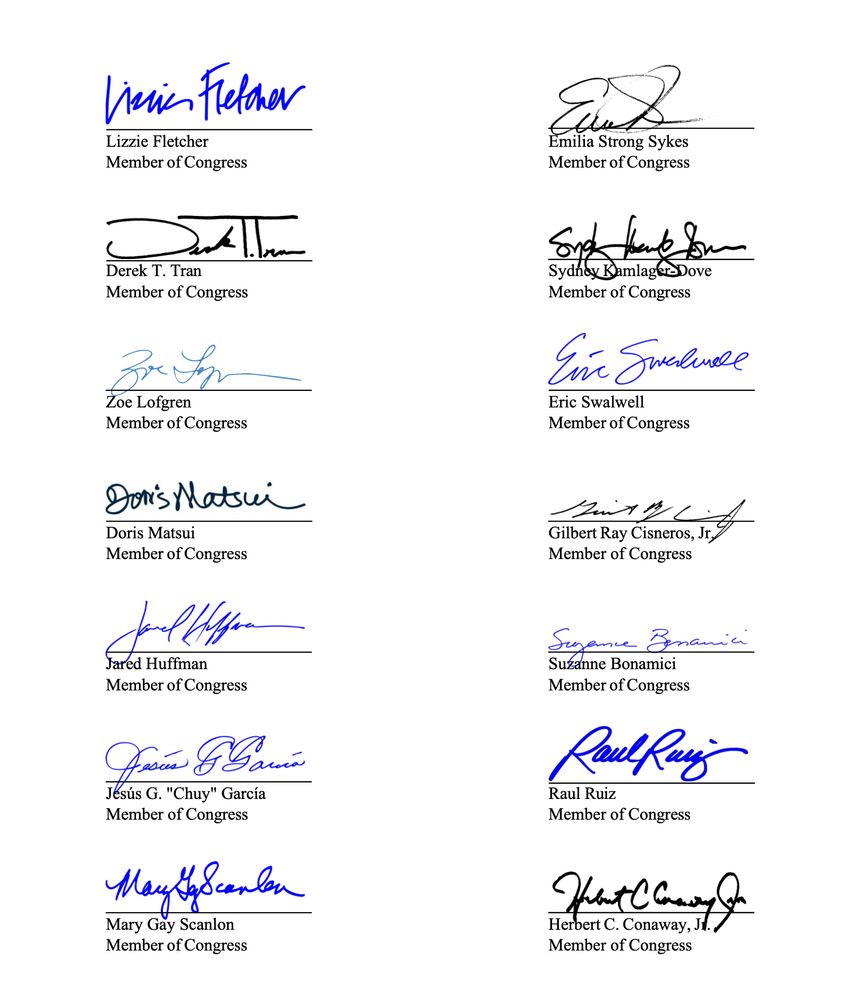 Lizzie Fletcher
Lizzie Fletcher
Member of Congress
Emilia Strong Sykes
Member of Congress
Derek T. Tran
Derek T. Tran
Member of Congress
Sydney Kamlager-Dove
Member of Congress
Zoe Lofgren
Member of Congress
Eric Swalwell
Eric Swalwell
Member of Congress
Doris Matsui
Doris Matsui
Member of Congress
Gilbert Ray Cisneros, Jr.
Member of Congress
Jared Huffman
Jared Huffman
Member of Congress
Suzanne Bonamici
Suzanne Bonamici
Member of Congress
Jesús G García
Jesús G. "Chuy" García
Member of Congress
Raul Ruiz
Raul Ruiz
Member of Congress
Mary Gay Scanlon
Mary Gay Scanlon
Member of Congress
Herbert C Conaway Jr
Herbert C. Conaway, Jr.
Member of Congress